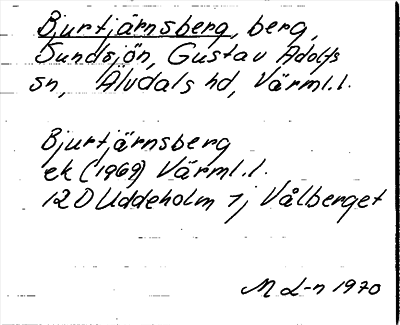 Bjurtjärnsberg, berg,
Sundsjön, Gustav Adolfs
sn, Älvdals hd, Värml.l.
Bjurtjärnsberg
ek (1969) Värml.l.
12 D Uddeholm 1j Vålberget
M L-n 1970